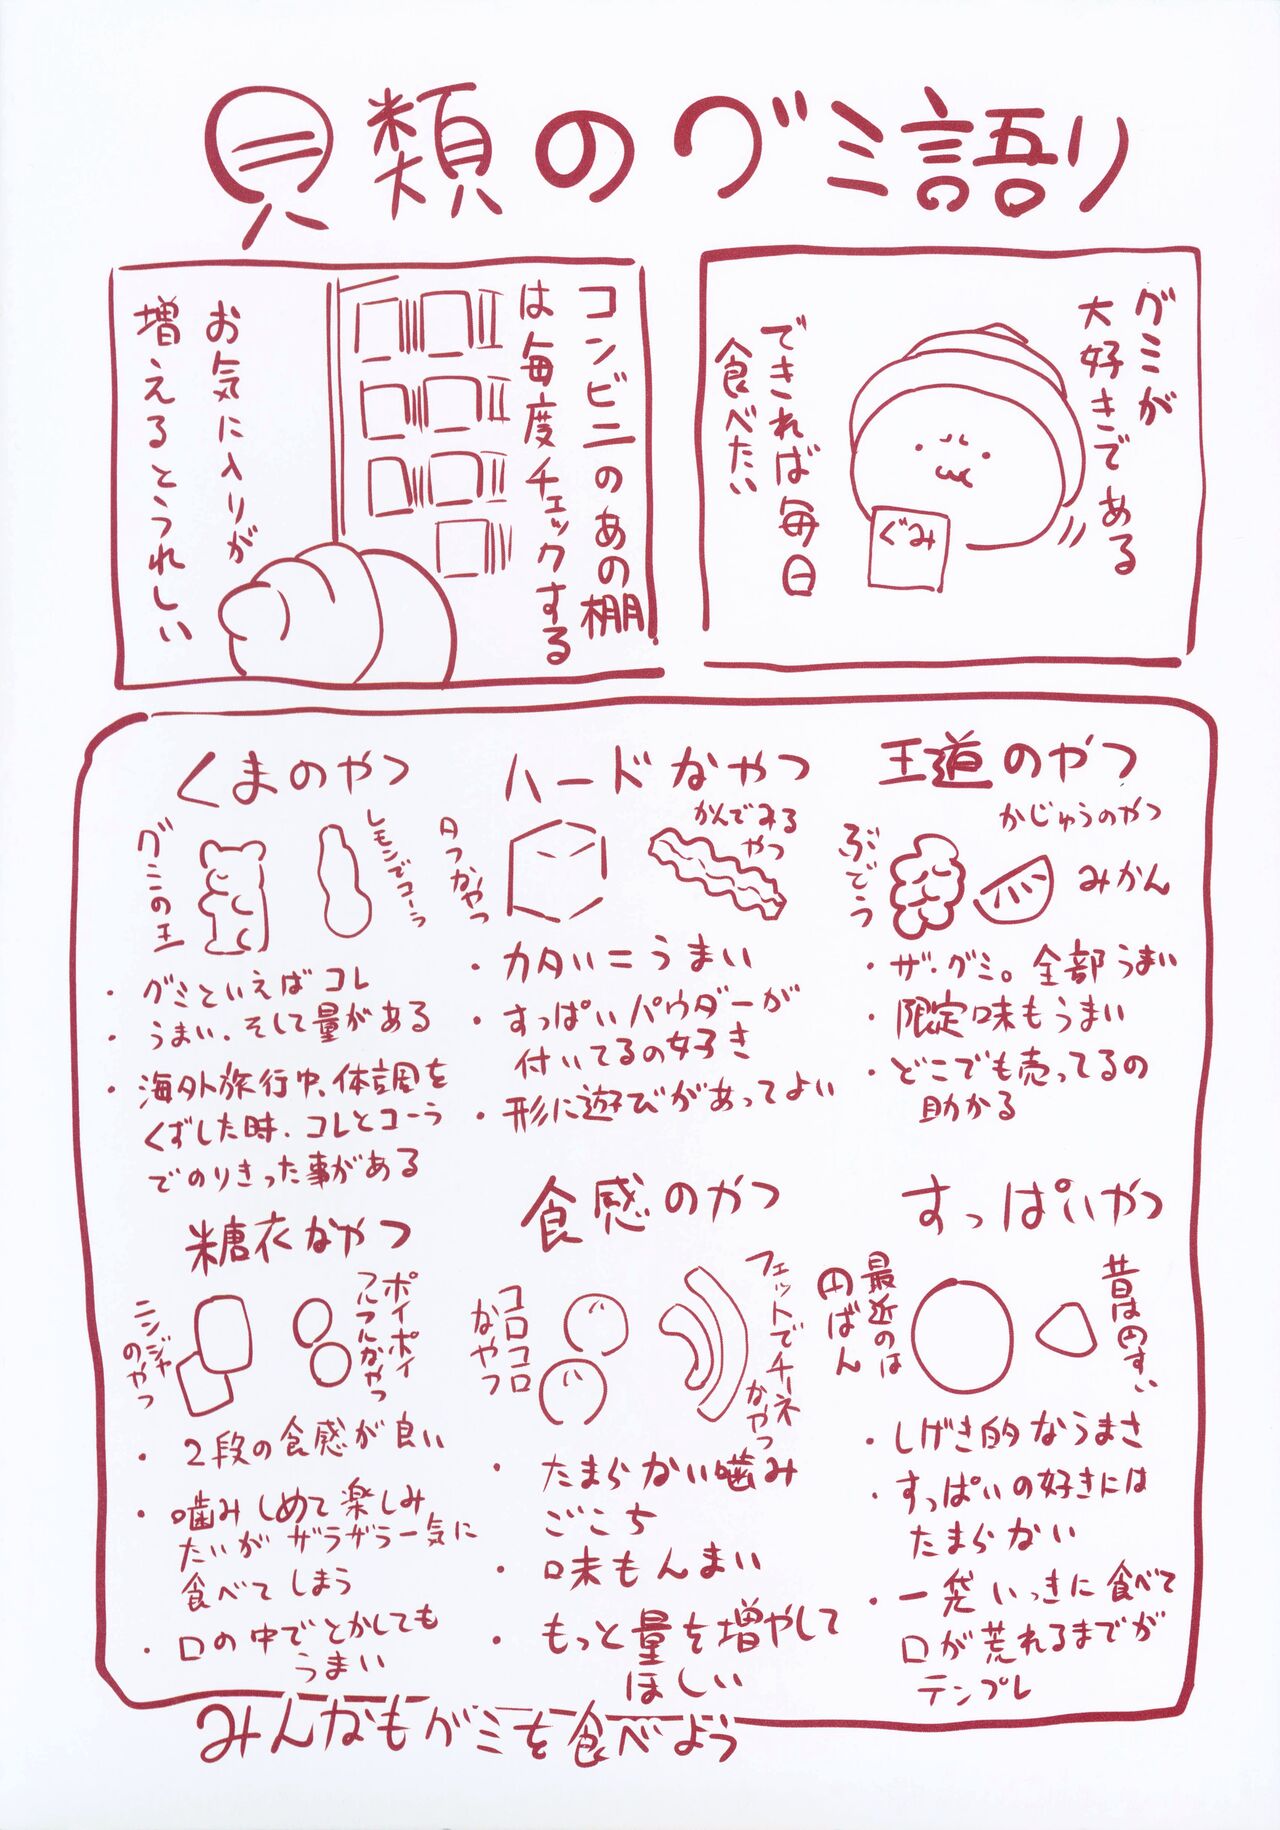 貝類のグミ語り
グミが
大好きである
できれば毎日
食べたい
ぐみ
コンビニのあの棚
は毎度チェックする
お気に入りが
増えるとうれしい
王道のやつ
かじゅうのやつ
ぶどう
みかん
・ザ・グミ。全部うまい
・限定味もうまい
・どこでも売ってるの
助かる
ハードなやつ
かんでみる
やつ
・カタい＝うまい
・すっぱいパウダーが
付いてるの好き
・形に遊びがあってよい
くまのやつ
グミの王
レモンでコーラ
・グミといえばコレ
・うまい、そして量がある
・海外旅行中、体調を
くずした時、コレとコーラ
でのりきった事がある
すっぱいやつ
昔は円すい
最近のは
円ばん
・しげき的なうまさ
・すっぱいの好きには
たまらない
・一袋いっきに食べて
口が荒れるまでが
テンプレ
食感のやつ
フェットでチーネ
なやつ
コロコロ
なやつ
・たまらない噛み
ごこち
・味もんまい
・もっと量を増やして
ほしい
糖衣なやつ
ポイポイ
フルフルなやつ
ニンジャ
のやつ
・2段の食感が良い
・噛みしめて楽しみ
たいがザラザラ一気に
食べてしまう
・口の中でとかしても
うまい
みんなもグミを食べよう